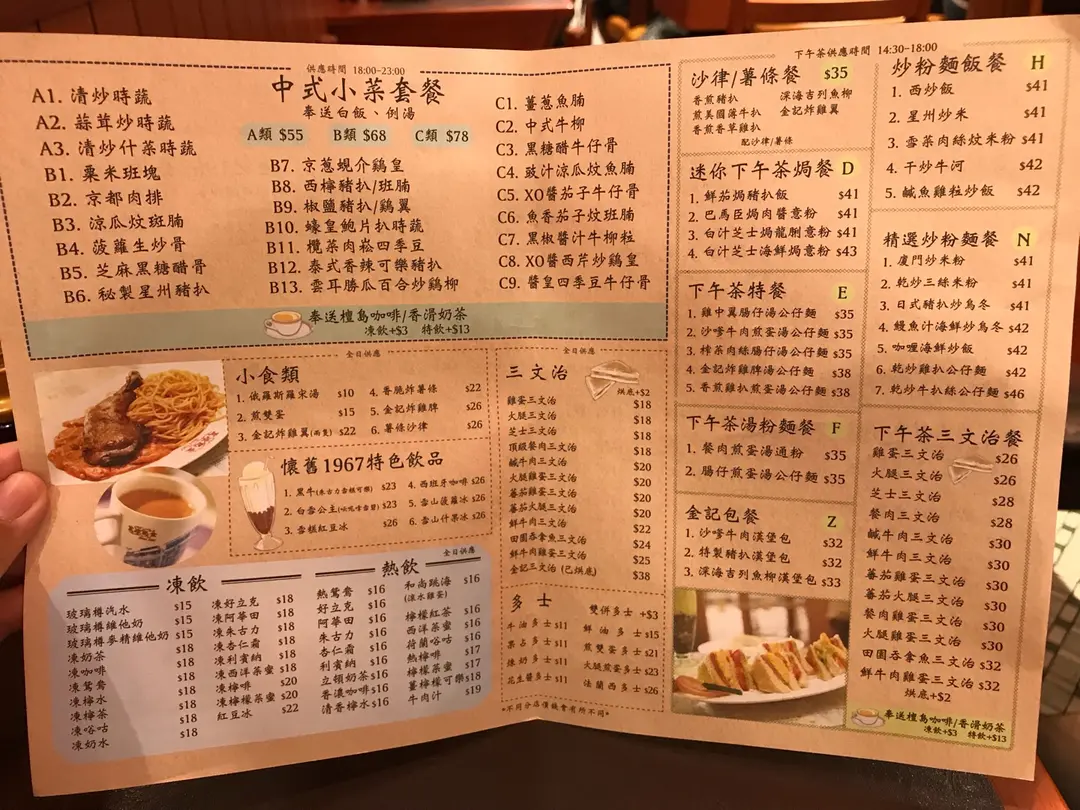 供應時間 18:00~23:00
中式小菜套餐
奉送白飯、例湯
A類 $55 B類 $68 C類 $78
A1. 清炒時蔬
A2. 蒜茸炒時蔬
A3. 清炒什菜時蔬
B1. 粟米班塊
B2. 京都肉排
B3. 涼瓜炆班腩
B4. 菠蘿生炒骨
B5. 芝麻黑糖醋骨
B6. 秘製星州豬扒
B7. 京葱蜆介鷄皇
B8. 西檸豬扒/班腩
B9. 椒鹽豬扒/鷄翼
B10. 蠔皇鮑片扒時蔬
B11. 欖菜肉崧四季豆
B12. 泰式香辣可樂豬扒
B13. 雲耳勝瓜百合炒鷄柳
C1. 薑葱魚腩
C2. 中式牛柳
C3. 黑糖醋牛仔骨
C4. 豉汁涼瓜炆魚腩
C5. XO醬茄子牛仔骨
C6. 魚香茄子炆班腩
C7. 黑椒醬汁牛柳粒
C8. XO醬西芹炒鷄皇
C9. 醬皇四季豆牛仔骨
奉送檀島咖啡/香滑奶茶
凍飲+$3 特飲+$13
全日供應
小食類
1. 俄羅斯羅宋湯 $10
2. 煎雙蛋 $15
3. 金記炸雞翼(兩隻) $22
4. 香脆炸薯條 $22
5. 金記炸雞髀 $26
6. 薯條沙律 $26
懷舊1967特色飲品
1. 黑牛(朱古力雪糕可樂) $23
2. 白雪公主 $23
3. 雪糕紅豆冰 $26
4. 西班牙咖啡 $26
5. 雪山菠蘿冰 $26
6. 雪山什果冰 $26
全日供應
凍飲
玻璃樽汽水 $15
玻璃樽維他奶 $15
玻璃樽麥精維他奶 $15
凍奶茶 $18
凍咖啡 $18
凍鴛鴦 $18
凍檸水 $18
凍檸茶 $18
凍唂咕 $18
凍奶水 $18
凍好立克 $18
凍阿華田 $18
凍朱古力 $18
凍杏仁霜 $18
凍利賓納 $18
凍西洋菜蜜 $18
凍檸啡 $20
凍檸檬菜蜜 $20
紅豆冰 $22
熱飲
熱鴛鴦 $16
好立克 $16
阿華田 $16
朱古力 $16
杏仁霜 $16
利賓納 $16
立頓奶茶 $16
香濃咖啡 $16
清香檸水 $16
和尚跳海 $16
(滾水雞蛋)
檸檬紅茶 $16
西洋菜蜜 $16
荷蘭唂咕 $16
熱檸啡 $17
檸檬菜蜜 $17
薑檸檬可樂 $18
牛肉汁 $19
全日供應
三文治
烘底+$2
雞蛋三文治 $18
火腿三文治 $18
芝士三文治 $18
頂級餐肉三文治 $18
鹹牛肉三文治 $20
火腿雞蛋三文治 $20
蕃茄雞蛋三文治 $20
蕃茄火腿三文治 $20
鮮牛肉三文治 $22
田園吞拿魚三文治 $24
鮮牛肉雞蛋三文治 $25
金記三文治 (已烘底) $38
多士
雙併多士 +$3
牛油多士 $11
果占多士 $11
煉奶多士 $11
花生醬多士 $11
鮮油多士 $15
煎雙蛋多士 $21
火腿煎蛋多士 $23
法蘭西多士 $26
*不同分店價錢會有所不同*
下午茶供應時間 14:30~18:00
沙律/薯條餐 $35
香煎豬扒
煎美國薄牛扒
香煎香草雞扒
深海吉列魚柳
金記炸雞翼
配沙律/薯條
迷你下午茶焗餐 D
1. 鮮茄焗豬扒飯 $41
2. 巴馬臣焗肉醬意粉 $41
3. 白汁芝士焗龍脷意粉 $41
4. 白汁芝士海鮮焗意粉 $43
下午茶特餐 E
1. 雞中翼腸仔湯公仔麵 $35
2. 沙嗲牛肉煎蛋湯公仔麵 $35
3. 榨菜肉絲腸仔湯公仔麵 $35
4. 金記炸雞髀湯公仔麵 $38
5. 香煎雞扒煎蛋湯公仔麵 $38
下午茶湯粉麵餐 F
1. 餐肉煎蛋湯通粉 $35
2. 腸仔煎蛋湯公仔麵 $35
金記包餐 Z
1. 沙嗲牛肉漢堡包 $32
2. 特製豬扒漢堡包 $32
3. 深海吉列魚柳漢堡包 $33
炒粉麵飯餐 H
1. 西炒飯 $41
2. 星州炒米 $41
3. 雪菜肉絲炆米粉 $41
4. 干炒牛河 $42
5. 鹹魚雞粒炒飯 $42
精選炒粉麵餐 N
1. 廈門炒米粉 $41
2. 乾炒三絲米粉 $41
3. 日式豬扒炒烏冬 $41
4. 鰻魚汁海鮮炒烏冬 $42
5. 咖喱海鮮炒飯 $42
6. 乾炒雞扒公仔麵 $42
7. 乾炒牛扒絲公仔麵 $46
下午茶三文治餐
雞蛋三文治 $26
火腿三文治 $26
芝士三文治 $28
餐肉三文治 $28
鹹牛肉三文治 $30
鮮牛肉三文治 $30
蕃茄雞蛋三文治 $30
蕃茄火腿三文治 $30
餐肉雞蛋三文治 $30
火腿雞蛋三文治 $30
田園吞拿魚三文治 $32
鮮牛肉雞蛋三文治 $32
烘底+$2
奉送檀島咖啡/香滑奶茶
凍飲+$3 特飲+$13